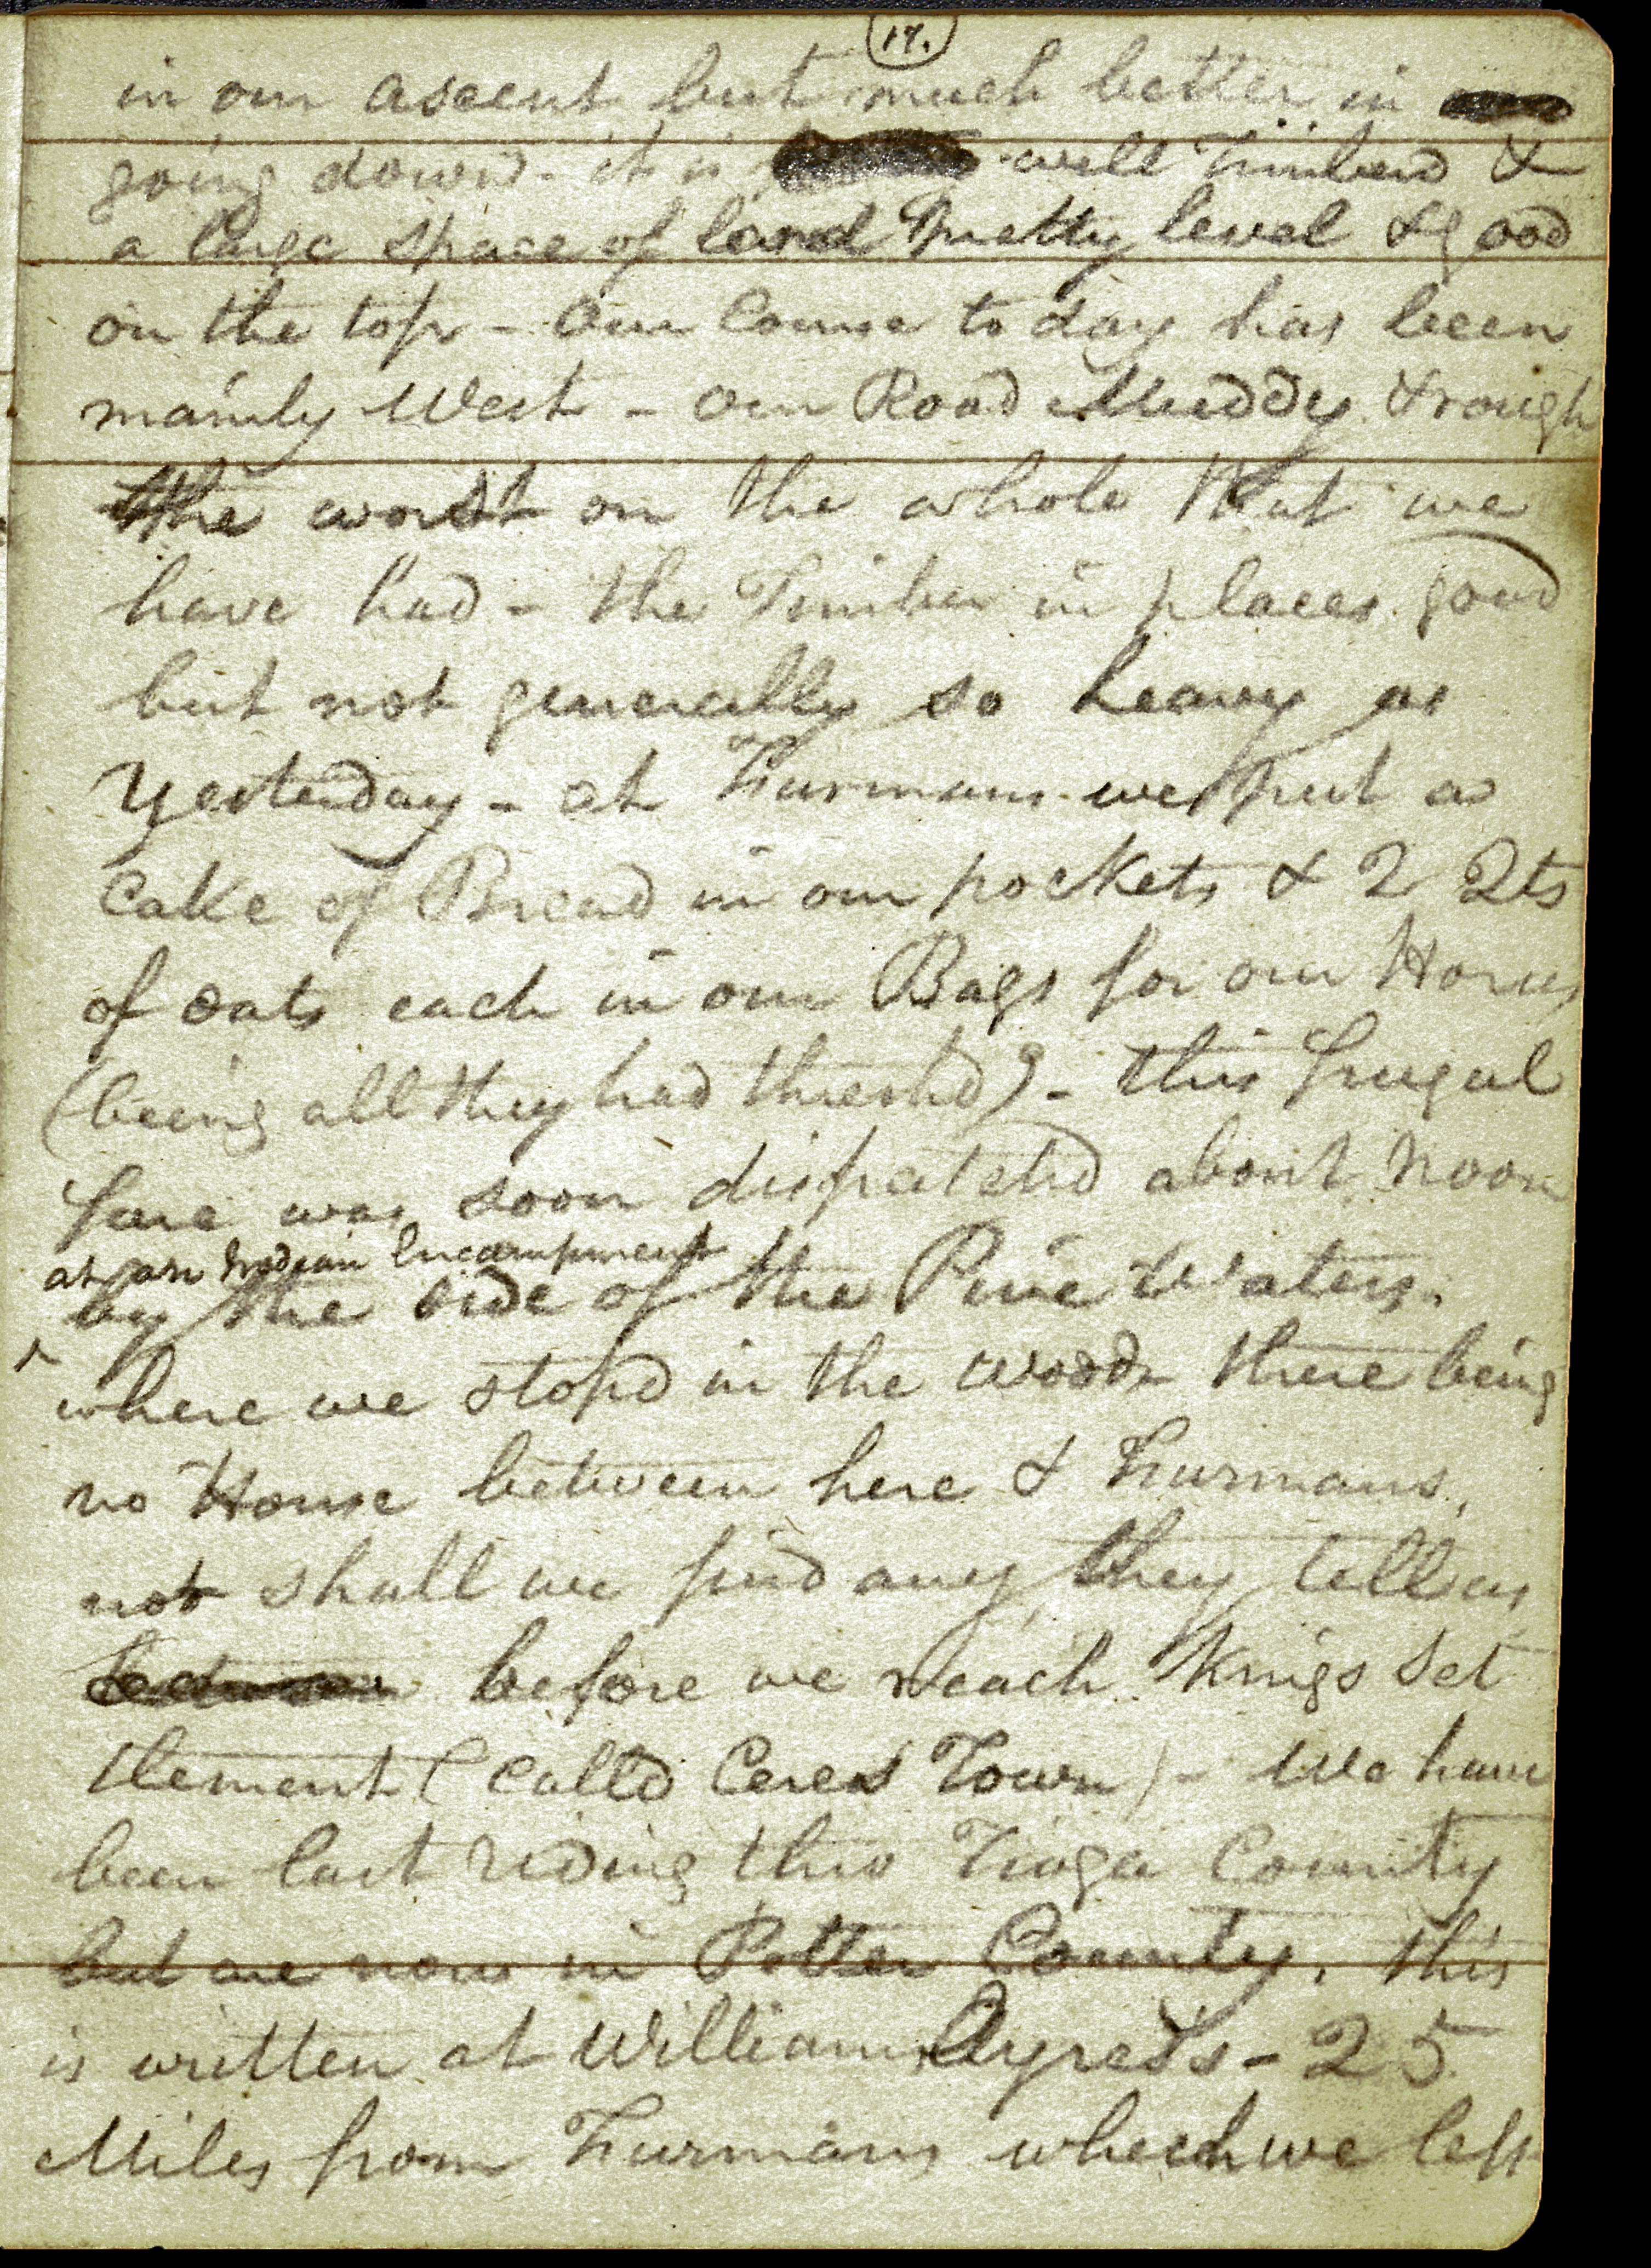 17.
in our ascent but much better in
going down - it is well Timberd &
a large space of land pretty level & good
on the top - Our Course to day has been
mainly West - our Road Muddy & rough
the worst on the whole that we
have had - the Timber in places good
but not generally so heavy as
Yesterday - at Furmans we put a
Cake of Bread in our pockets & 2 Qts
of oats each in our Bags for our Horses
(being all they had threshd) - this frugal
fare was soon dispatchd about Noon
at an Indian Encampment
by the side of the Pine Waters.
where we stopd in the woods there being
no House between here & Furmans,
not shall we find any they tell us
before we reach Kings Set
tlement (calld Ceres Town) - We have
been last riding thro Tioga County
but are now in Potter County. this
is written at William Ayres's - 25
Miles from Furmans which we left